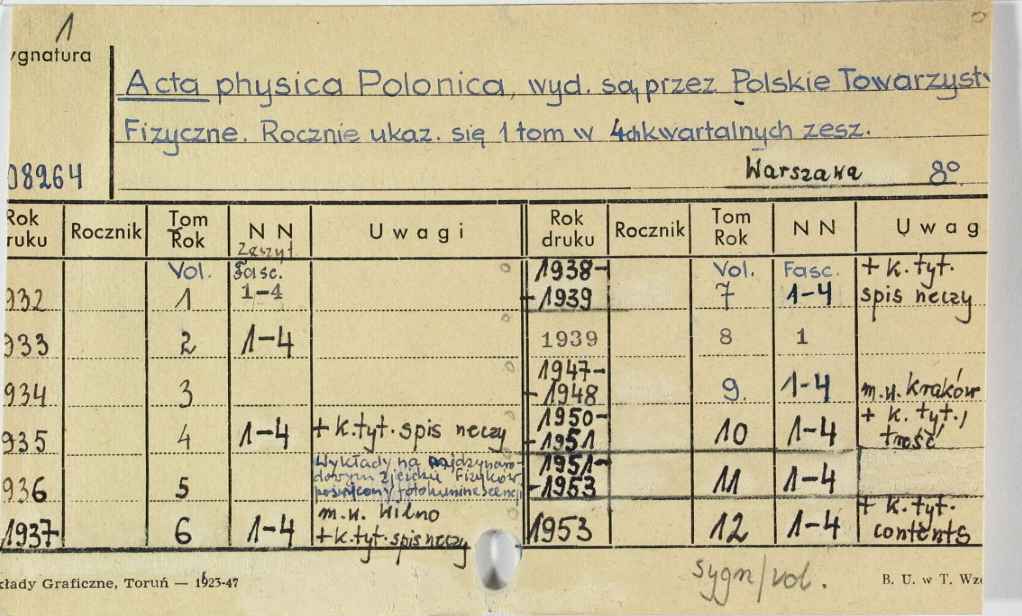 1
ygnatura
Acta physica Polonica, wyd. są przez Polskie Towarzyst
Fizyczne. Rocznie ukaz. się 1 tom w 4ch kwartalnych zesz.
08264
Warszawa 8°
Rok ruku Rocznik Tom Rok N N Zeszyt Uwagi Rok druku Rocznik Tom Rok N N Uwag
Vol. Fasc. 1938- Vol. Fasc. + k. tyt.
932 1 1-4 -1939 7 1-4 spis rzeczy
933 2 1-4 1939 8 1
1947-
934 3 -1948 9. 1-4 m.w. Kraków
1950- + k. tyt.,
935 4 1-4 + k.tyt. spis rzeczy -1951 10 1-4 treść
Wykłady na międzynaro- 1951-
dowym zjeździe Fizyków
936 5 poświęcony fotoluminescencji -1953 11 1-4
m.w. Wilno + k. tyt.
1937 6 1-4 + k.tyt. spis rzeczy 1953 12 1-4 contents
kłady Graficzne, Toruń — 1623-47
sygn/vol.
B. U. w T. Wz